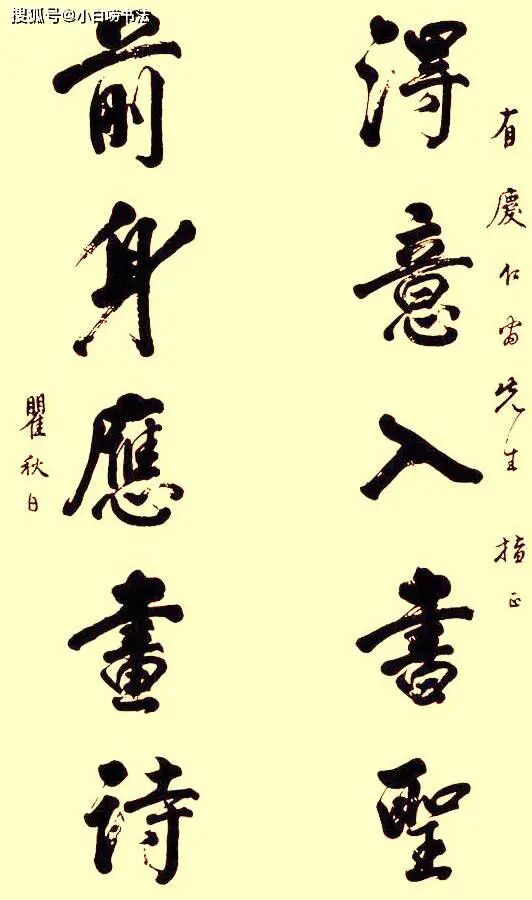 搜狐号@小白唠书法
有慶仁先生 指正
得意入書聖
前身應畫詩
瞿秋白